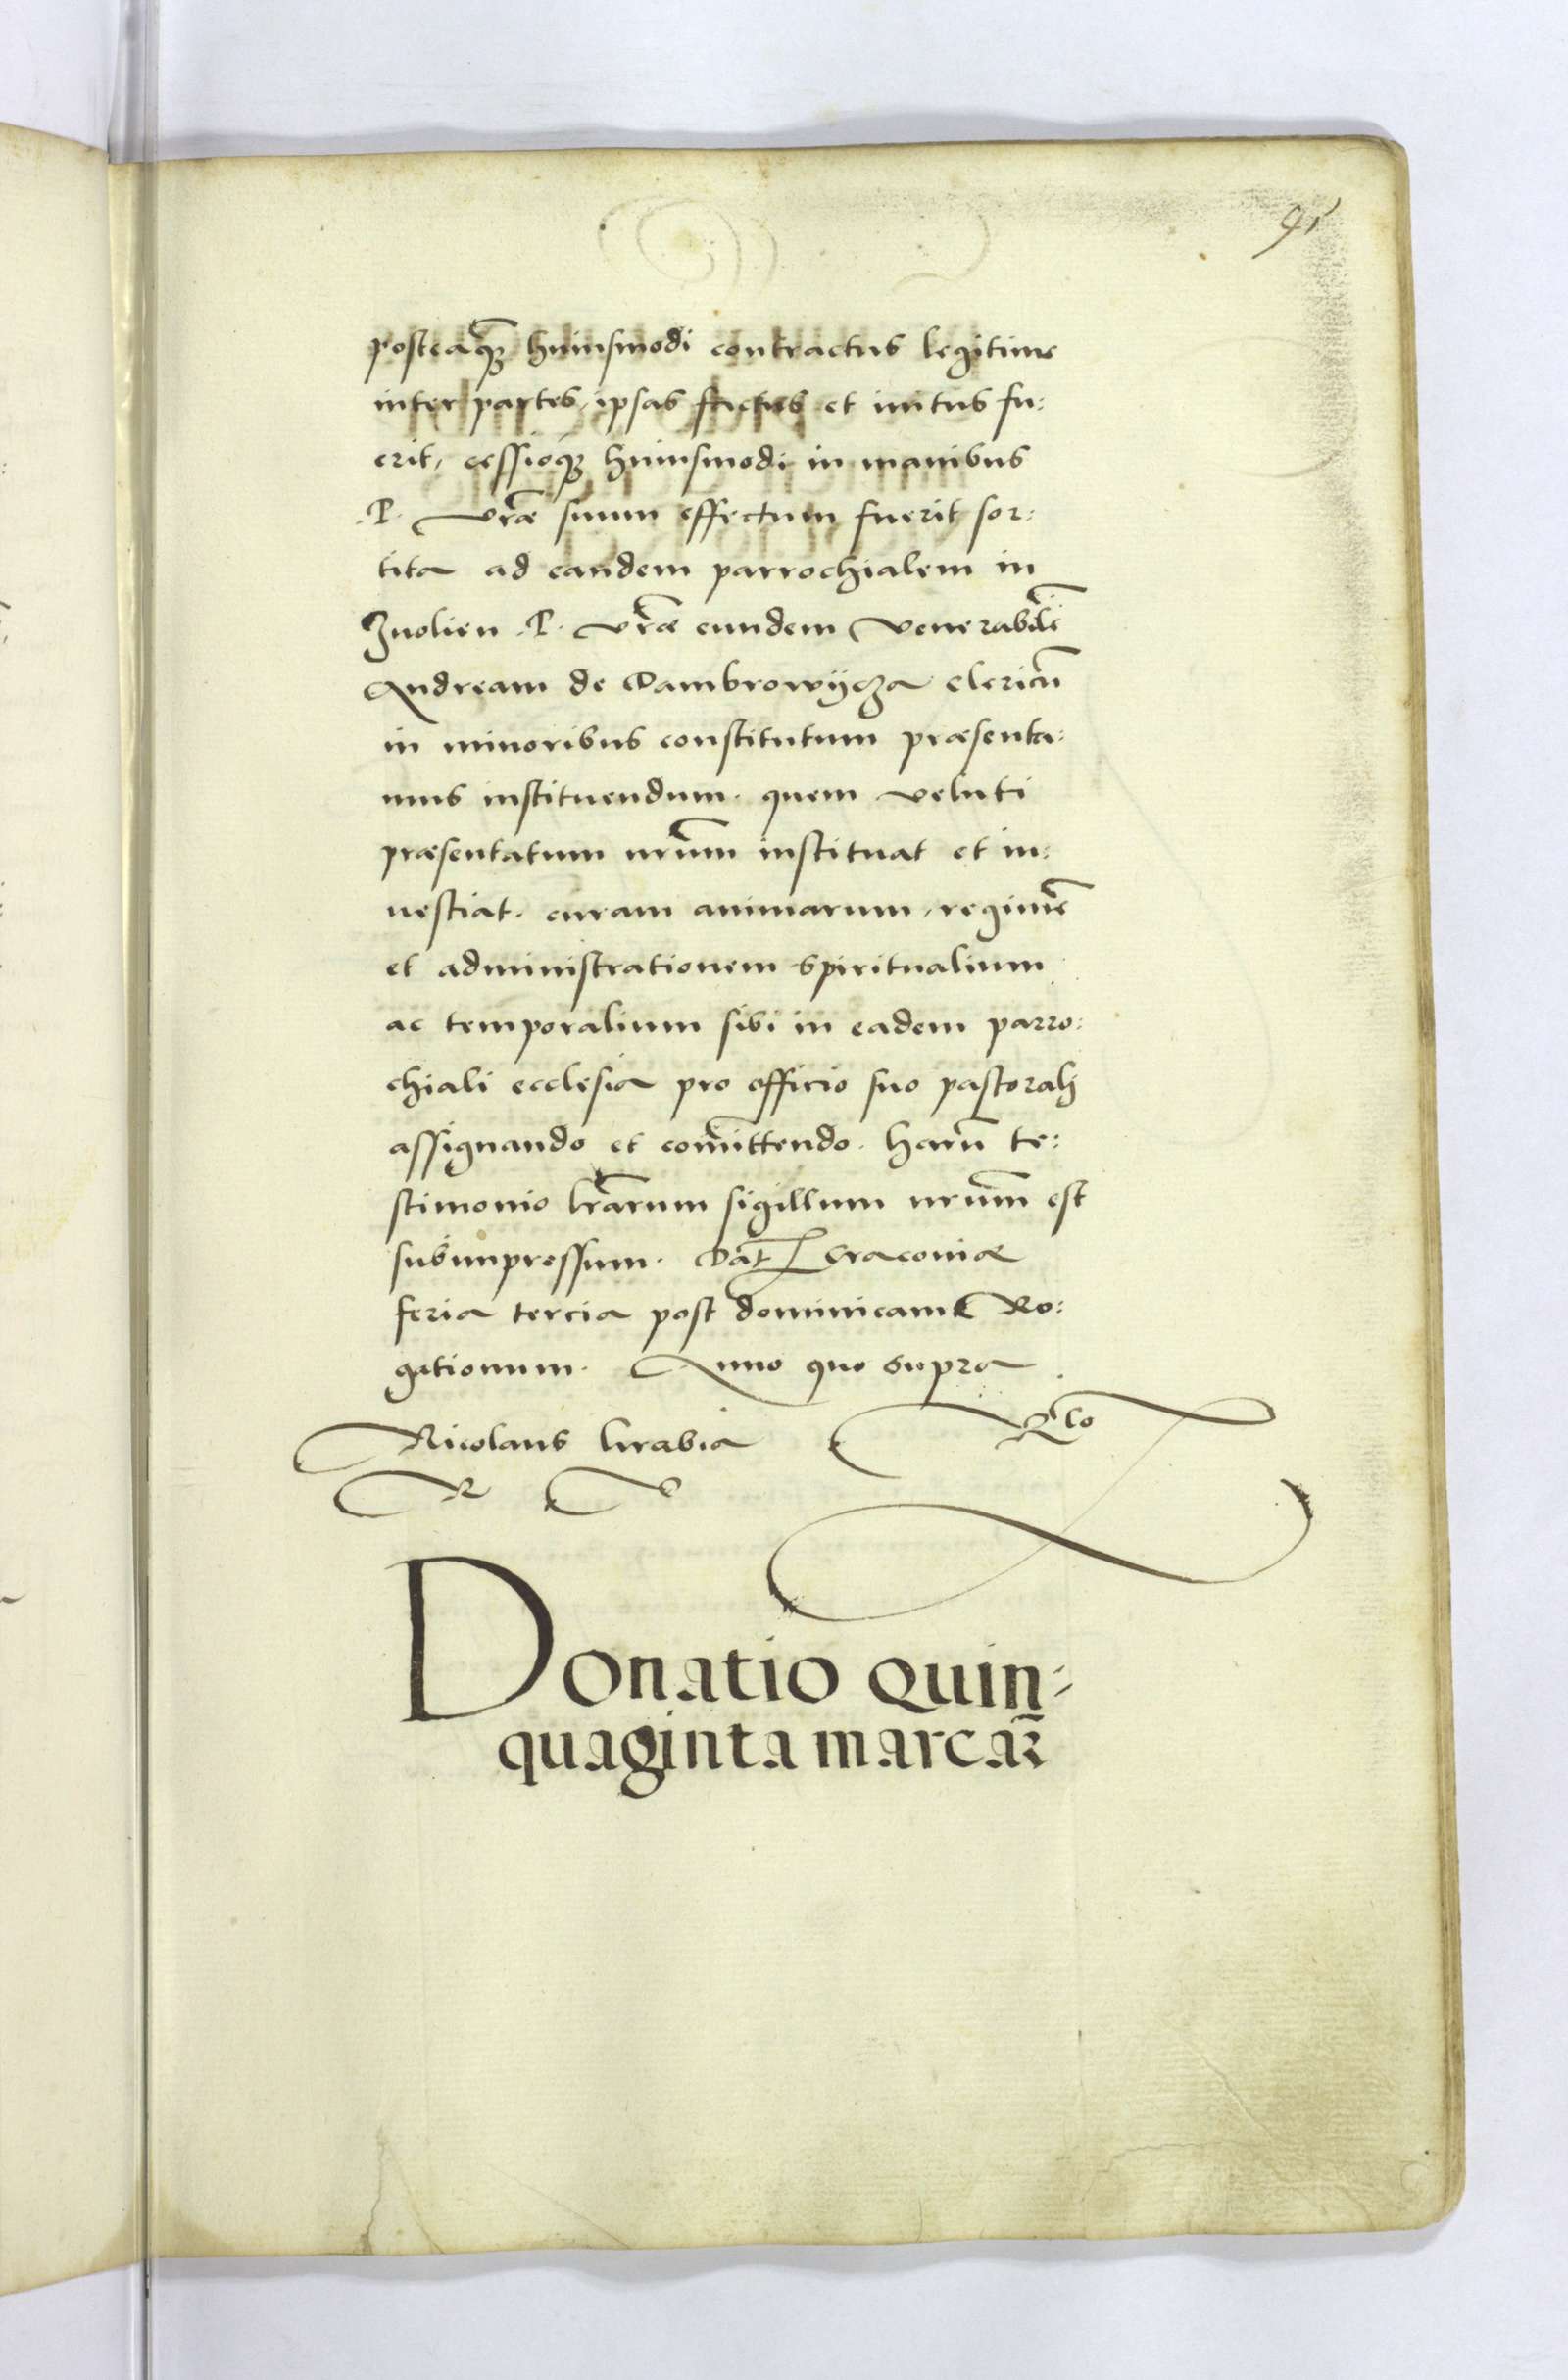 91
posteaq̃ꝫ huiusmodi contractus legitime
inter partes, ipsas factus et initus fu:
erit, cessioqꝫ huiusmodi in manibus
.P. vr̃æ suum effectum fuerit sor:
tita ad eandem parrochialem in
Zuolien .P. vr̃æ eundem venerabilẽ
Andream de Dambrowycza clericũ
in minoribus constitutum præsenta:
mus instituendum. quem veluti
præsentatum nr̃um instituat et in:
uestiat. curam animarum, regimẽ
et administrationem spiritualium
ac temporalium sibi in eadem parro:
chiali ecclesia pro officio suo pastorali
assignando et com̃ittendo. harũ te:
stimonio lr̃arum sigillum nr̃um est
subimpressum. Dat̃ Cracouiæ
feria tercia post dominicam Ro:
gationum. Anno quo supra
Nicolaus hrabia
Donatio quin-
quaginta marcaꝝ